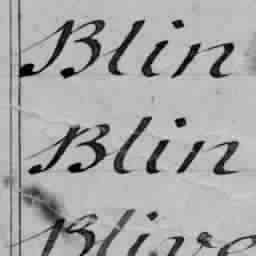 Blin
Blin
Blive